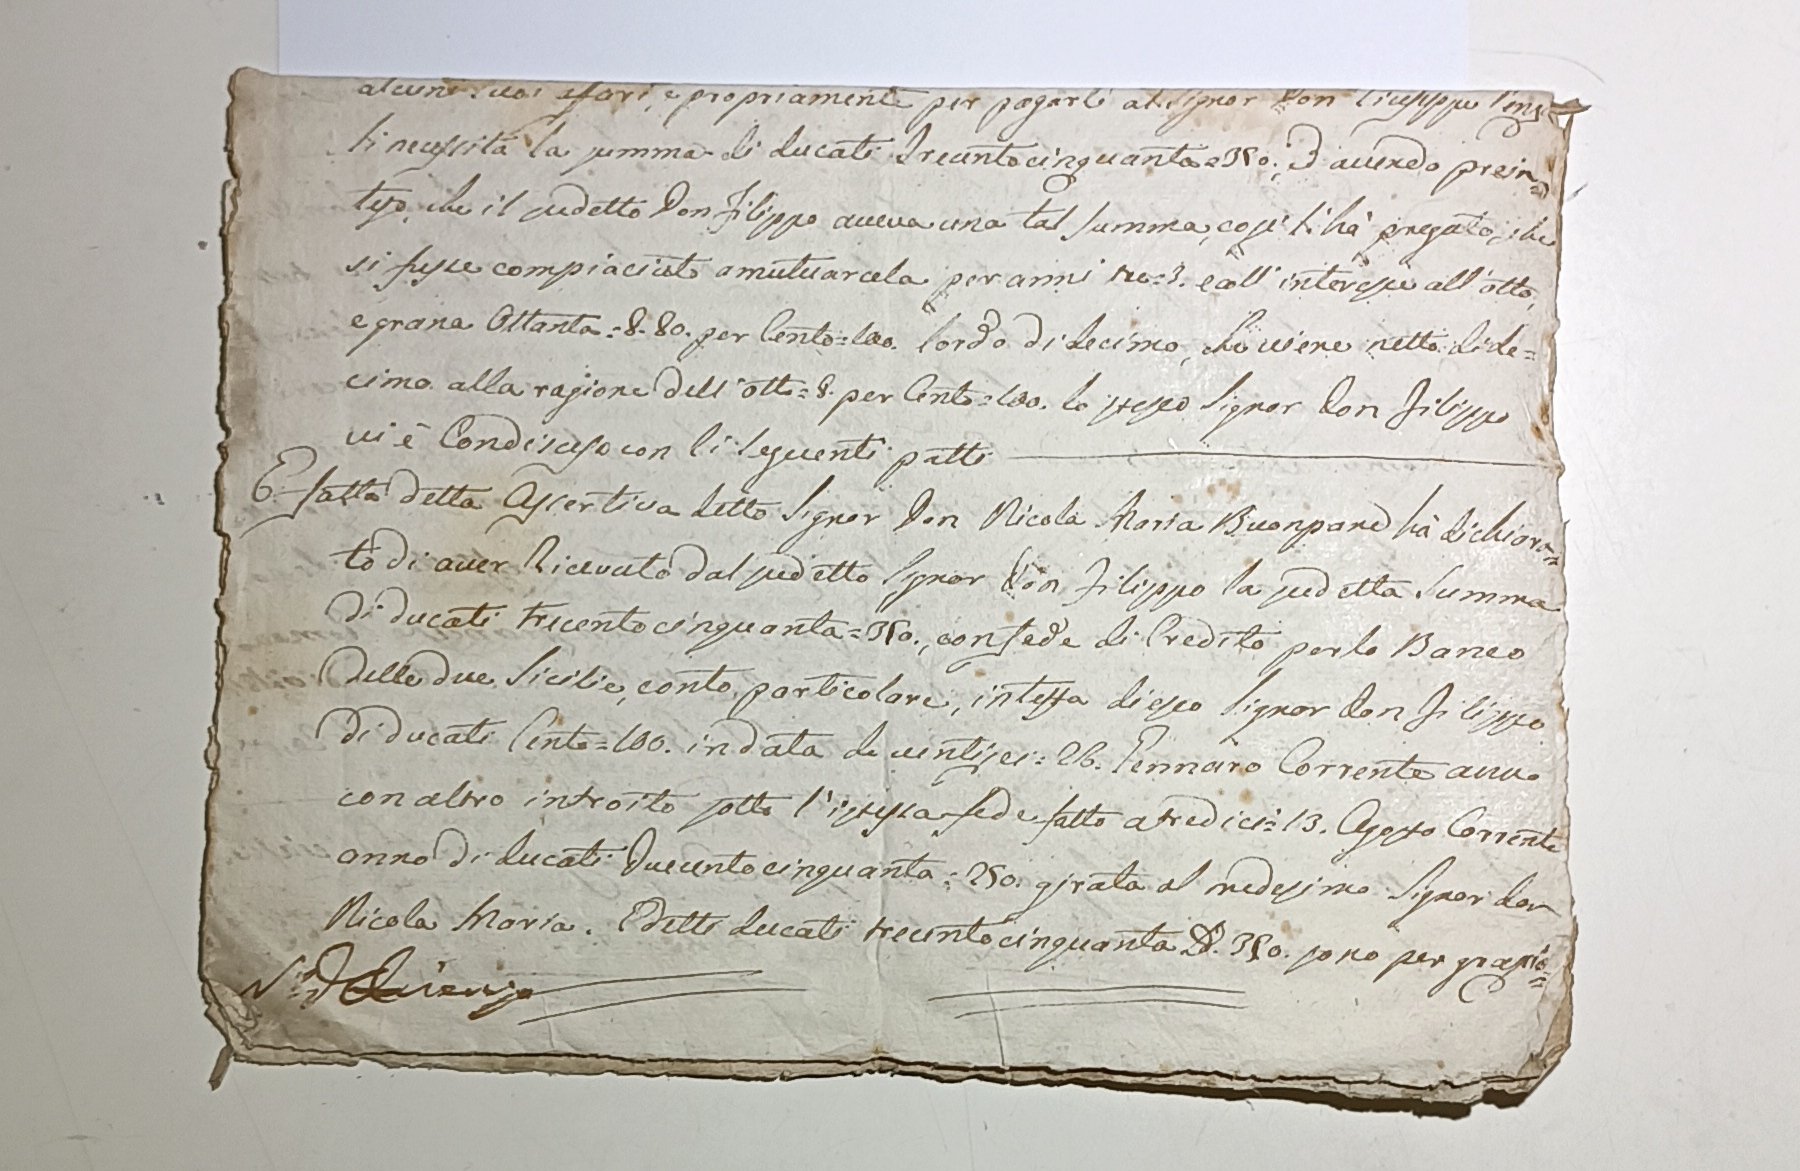 alcuni suoi affari, e propriamente per pagarli al Signor Don Giuseppe
li necessita la summa di ducati Trecentocinquanta=350:, Ed avendo prein=
teso, che il sudetto Don Filippo aveva una tal summa, così li hà pregato, che
si fusse compiaciuto a mutuarcela per anni tre=3. e coll' interesse all' otto,
e grana Ottanta=8.80. per Cento=100. lordo di decimo, che viene netto di de=
cimo alla ragione dell' otto=8. per Cento=100. lo stesso Signor Don Filippo
vi è Condisceso con li seguenti patti
E fatta detta Assertiva detto Signor Don Nicola Maria Buonpane hà dichiara=
to di aver Ricevuto dal sudetto Signor Don Filippo la sudetta Summa
di ducati trecentocinquanta=350., con fede di Credito per lo Banco
delle due Sicilie, conto particolare, in testa di esso Signor Don Filippo
di ducati Cento=100. in data de ventisei=26. Gennaro Corrente anno
con altro introito sotto l'istessa fede fatto a tredici=13. Agosto Corrente
anno di ducati Duecentocinquanta=250. girata al medesimo Signor don
Nicola Maria. E detti ducati trecentocinquanta D. 350. sono per